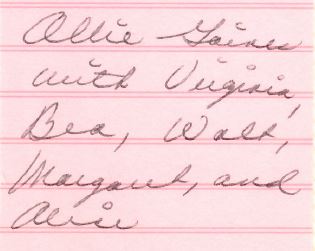 Ollie Gaines
with Virginia,
Bea, Walt,
Margaret, and
Alice